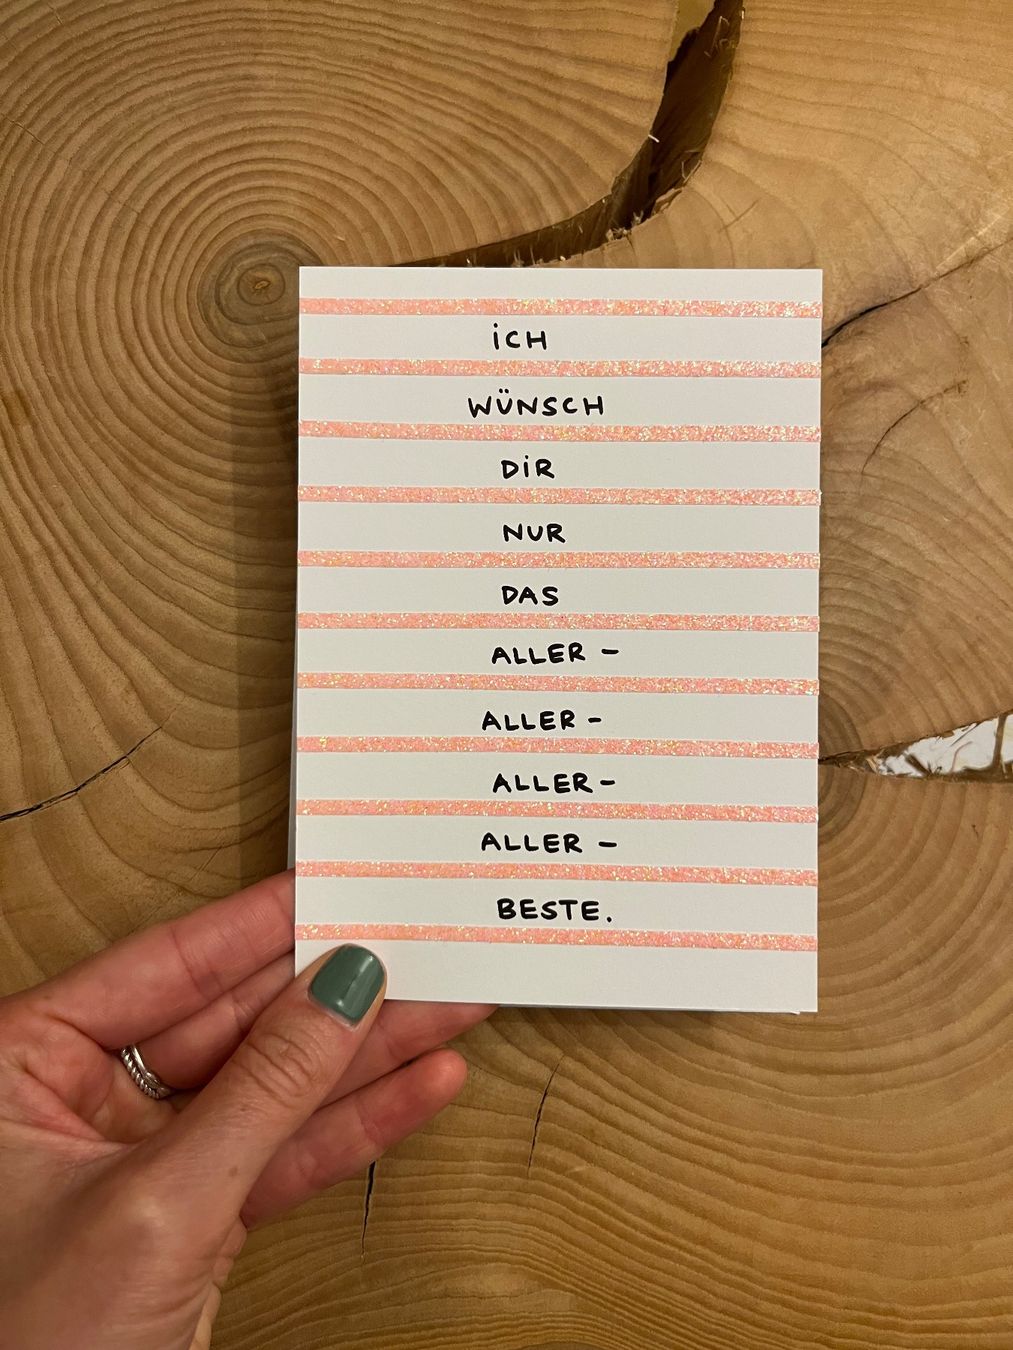 ICH
WÜNSCH
DIR
NUR
DAS
ALLER -
ALLER -
ALLER -
ALLER -
BESTE.